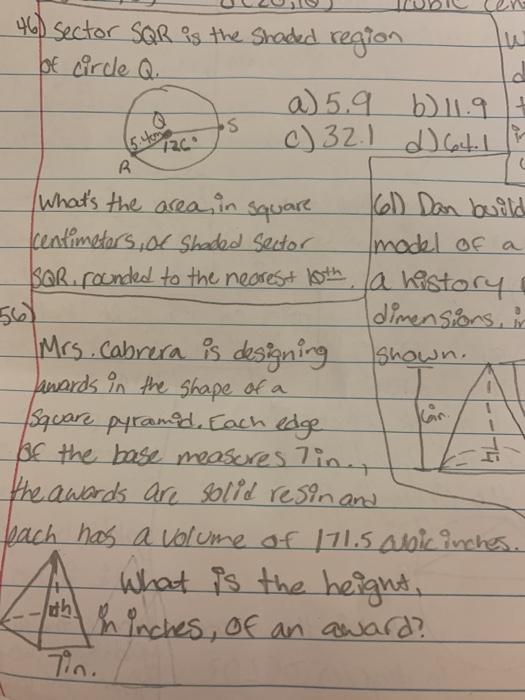 46) Sector SQR is the shaded region
of circle Q.
a) 5.9 b) 11.9
c) 32.1 d) 64.1
Q
S
5.4cm
126°
R
What's the area, in square
centimeters, of shaded sector
SQR, rounded to the nearest 10th.
61) Dan build
model of a
a history
dimensions, in
shown.
56)
Mrs. Cabrera is designing
awards in the shape of a
square pyramid. Each edge
of the base measures 7in.,
the awards are solid resin and
each has a volume of 171.5 cubic inches.
What is the height,
in inches, of an award?
h
7in.